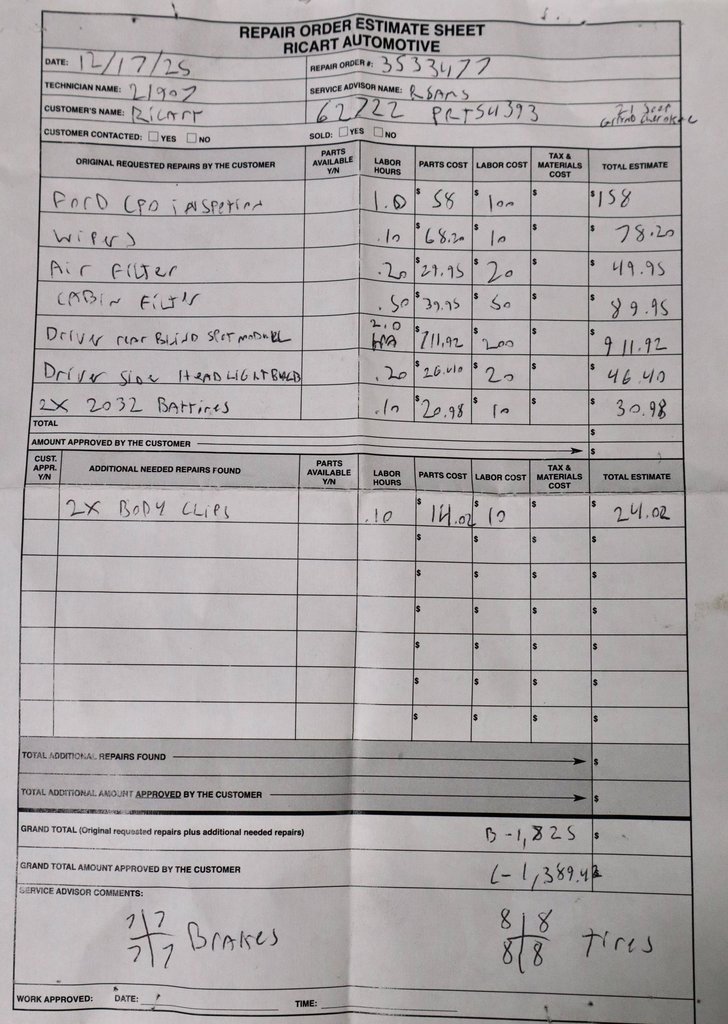 REPAIR ORDER ESTIMATE SHEET
RICART AUTOMOTIVE
DATE: 12/17/25 REPAIR ORDER #: 3533477
TECHNICIAN NAME: 21907 SERVICE ADVISOR NAME: RSAMS
CUSTOMER'S NAME: Ricart 62722 PRT54393 21 Jeep
Grand Cherokee
CUSTOMER CONTACTED: YES NO SOLD: YES NO
ORIGINAL REQUESTED REPAIRS BY THE CUSTOMER PARTS AVAILABLE Y/N LABOR HOURS PARTS COST LABOR COST TAX & MATERIALS COST TOTAL ESTIMATE
Ford CPO inspection 1.0 $58 $100 $ $158
Wipers .10 $68.20 $10 $ $78.20
Air Filter .20 $29.95 $20 $ $49.95
CABin Filter .50 $39.95 $50 $ $89.95
Driver rear Blind Spot module 2.0 $711.92 $200 $ $911.92
Driver Side HeadLight Bulb .20 $26.40 $20 $ $46.40
2X 2032 Battires .10 $20.98 $10 $ $30.98
TOTAL $
AMOUNT APPROVED BY THE CUSTOMER $
CUST. APPR. Y/N ADDITIONAL NEEDED REPAIRS FOUND PARTS AVAILABLE Y/N LABOR HOURS PARTS COST LABOR COST TAX & MATERIALS COST TOTAL ESTIMATE
2X Body Clips .10 $14.02 $10 $ $24.02
$ $ $ $
$ $ $ $
$ $ $ $
$ $ $ $
$ $ $ $
$ $ $ $
TOTAL ADDITIONAL REPAIRS FOUND $
TOTAL ADDITIONAL AMOUNT APPROVED BY THE CUSTOMER $
GRAND TOTAL (Original requested repairs plus additional needed repairs) B-1,825 $
GRAND TOTAL AMOUNT APPROVED BY THE CUSTOMER C-1,389.42
SERVICE ADVISOR COMMENTS:
7 7 8 8
7 7 Brakes 8 8 Tires
WORK APPROVED: DATE: TIME: